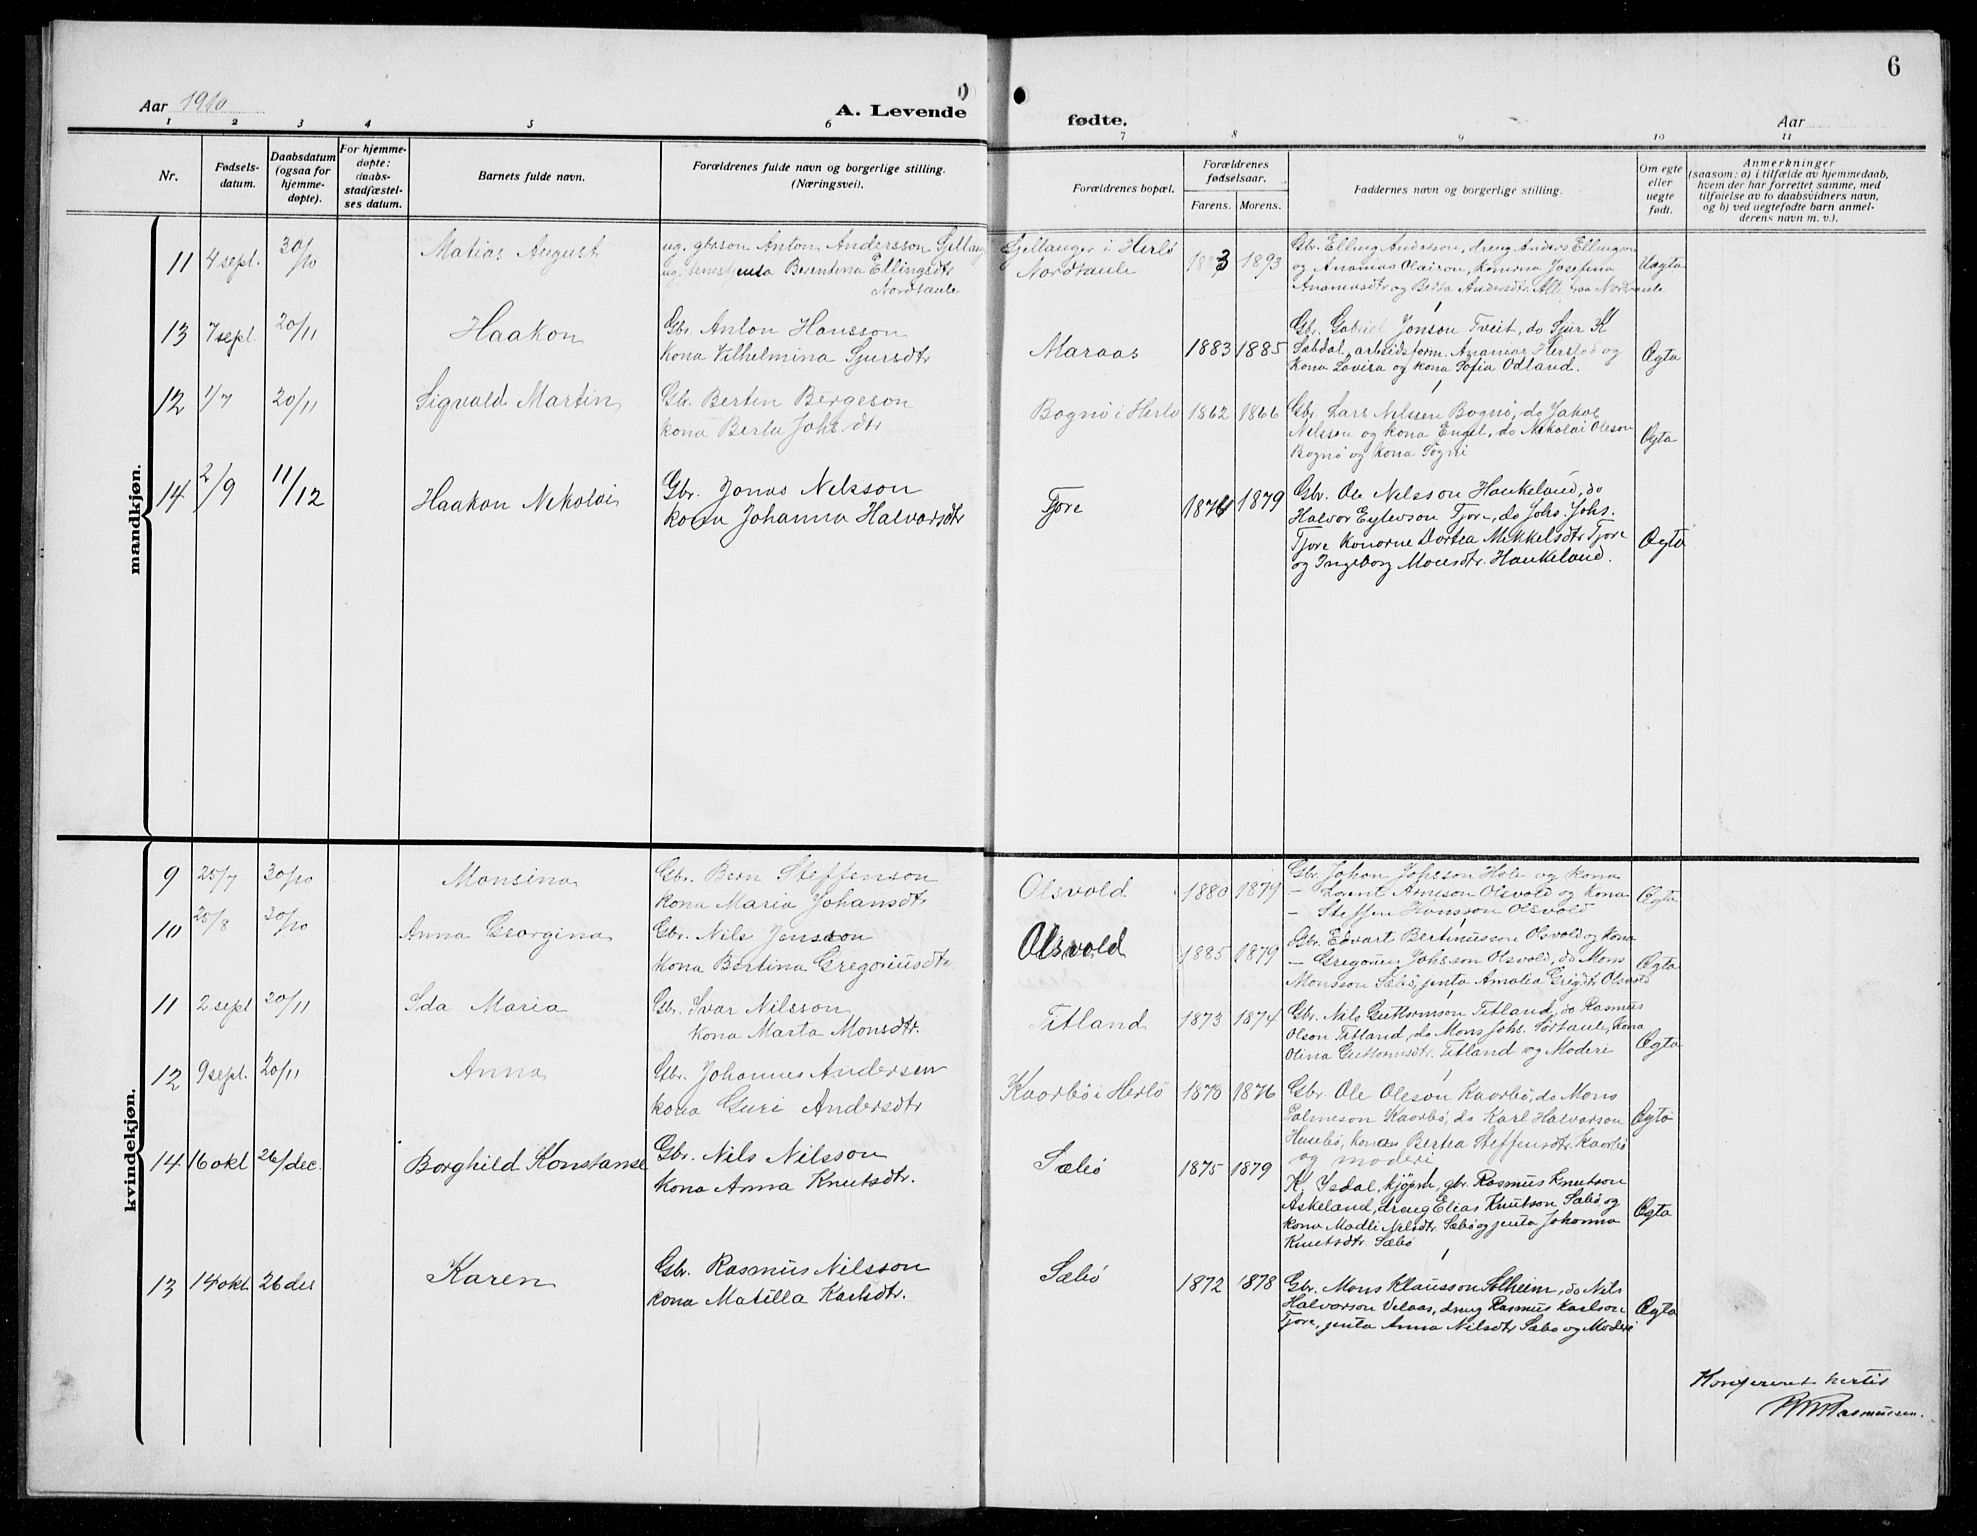 6
Aar 1910
A. Levende
fødte.
Aar
1 2 3 4 5 6 7 8 9 10 11
Nr.
Fødsels-
datum.
Daabsdatum
(ogsaa for
hjemme-
døpte).
For hjemme-
døpte:
daabs-
stadfæstel-
ses datum.
Barnets fulde navn.
Forældrenes fulde navn og borgerlige stilling.
(Næringsvei).
Forældrenes bopæl.
Forældrenes
fødselsaar.
Farens. Morens.
Faddernes navn og borgerlige stilling.
Om egte
eller
uegte
født.
Anmerkninger
(saasom: a) i tilfælde av hjemmedaab,
hvem der har forrettet samme, med
tilføielse av to daabsvidners navn,
og b) ved uegtefødte barn anmel-
derens navn m. v.).
mandkjøn.
11 4 sept. 30/10 Matias August
ug. gbrson Anton Andersson
ug. Berentina Ellingsdtr
Nordtaule
Gjellanger i Herlø
Nordtaule
1893
Gbr. Elling Andersson, dreng Anders Ellingson
og Ananias Olaison, konerna Josefina
Ananiasdtr og Berta Andersdtr. Alle fraa Nordtaule
Uægta
13 7 sept. 20/11 Haakon
Gbr. Anton Hansson
kona Vilhelmina Sjursdtr
Maraas 1883 1885
Gbr. Gabriel Jonson Tveit, do Sjur K
Sæbdal, arbeidsform. Ananias Herstad og
kona Lovisa og kona Sofia Odland.
Ægta
12 1/7 20/11 Sigvald Martin
Gbr. Bertin Bergeson
kona Berta Johs.dtr
Bognø i Herlø 1862 1866
Gbr. Lars Nilssen Bognø, do Jakob
Nilsson og kona Engel, do Nikolai Oleson
Bognø og kona
Ægta
14 2/9 11/12 Haakon Nikolai
Gbr. Jonas Nilsson
kona Johanna Halvorsdtr
Tjore 1879
Gbr. Ole Nilsson Haukeland, do
Halvor Tjore, do Johs. Johs.
Tjore konorne Dortea Mikkelsdtr Tjore
og Ingeborg Monsdtr. Haukeland.
Ægta
kvindekjøn.
9 25/7 30/10 Monsina
Gbr. Bern Steffenson
kona Maria Johansdtr
Olsvold 1880 1879
Gbr. Johan Johsson Hole og kona
– Arneson Olsvold og kona
– Steffen Hansson Olsvold
Ægta
10 25/8 30/10 Anna Georgina
Gbr. Nils Jensson
kona Bertina Gregoriusdtr
Olsvold 1885 1879
Gbr. Edvart Bertinusson Olsvold og kona
– Gregorius Johsson Olsvold, do Mons
Monsson Sæbø, jenta Amalia Olsvold
Ægta
11 2 sept 20/11 Ida Maria
Gbr. Ivar Nilsson
kona Marta Monsdtr.
Titland 1873 1874
Gbr. Nils Guttormson Titland, do Rasmus
Olson Titland, do Mons Johs. Sørtaule, kona
Olina Guttormsdtr. Titland og Moderi
Ægta
12 9 sept. 20/11 Anna
Gbr. Johannes Andersen
kona Guri Andersdtr
Kaarbø i Herlø 1876
Gbr. Ole Oleson Kaarbø, do Mons
Palmeson Kaarbø, do Karl Halvorson
Husebø, konan Bertea Steffensdtr. Kaarbø
og moderi
Ægta
14 16 okt 26/dec. Borghild Konstanse
Gbr. Nils Nilsson
kona Anna Knutsdtr.
Sæbø 1875 1879
K. Isdal, kjøpm, gbr. Rasmus Knutson
Askeland, dreng Elias Knutson Sæbø og
kona Madli Nilsdtr. Sæbø og jenta Johanna
Knutsdtr. Sæbø
Ægta
13 14 okt 26 des Karen
Gbr. Rasmus Nilsson
kona Matilla Karlsdtr.
Sæbø 1872 1878
Gbr. Mons Klausson Solheim, do Nils
Halvorson Velaas, dreng Rasmus Karlson
Tjore, jenta Anna Nilsdtr Sæbø og Moderi
Ægta
Konfereret hertil
Rasmussen.